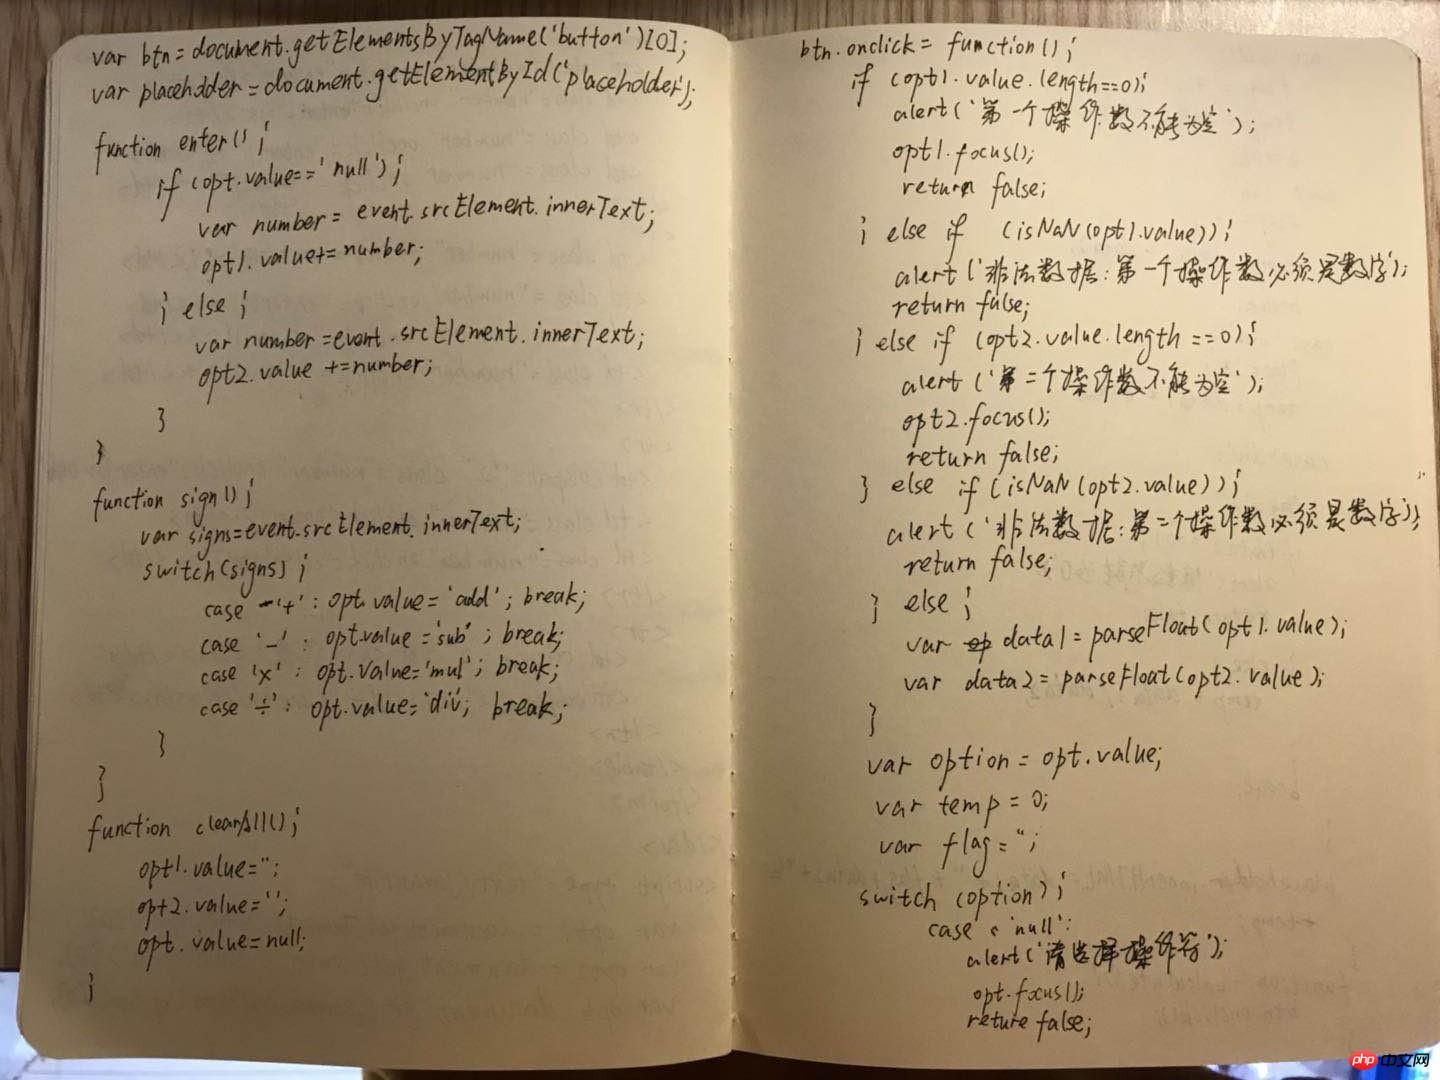 var btn=document.getElementsByTagName('button')[0];
var placeholder=document.getElementById('placeholder');
function enter() {
if (opt.value=='null') {
var number= event.srcElement.innerText;
opt1.value+=number;
} else {
var number=event.srcElement.innerText;
opt2.value +=number;
}
}
function sign() {
var signs=event.srcElement.innerText;
switch(signs) {
case '+' : opt.value='add' ; break;
case '-' : opt.value='sub' ; break;
case '×' : opt.value='mul' ; break;
case '÷' : opt.value='div'; break;
}
}
function clearAll() {
opt1.value='';
opt2.value='';
opt.value=null;
}
btn.onclick= function() {
if (opt1.value.length==0) {
alert('第一个操作数不能为空');
opt1.focus();
return false;
} else if (isNaN(opt1.value)) {
alert('非法数据:第一个操作数必须是数字');
return false;
} else if (opt2.value.length ==0) {
alert('第二个操作数不能为空');
opt2.focus();
return false;
} else if (isNaN(opt2.value)) {
alert('非法数据:第二个操作数必须是数字');
return false;
} else {
var data1=parseFloat(opt1.value);
var data2=parseFloat(opt2.value);
}
var option=opt.value;
var temp=0;
var flag='';
switch (option) {
case 'null':
alert('请选择操作符');
opt.focus();
return false;
php 中文网